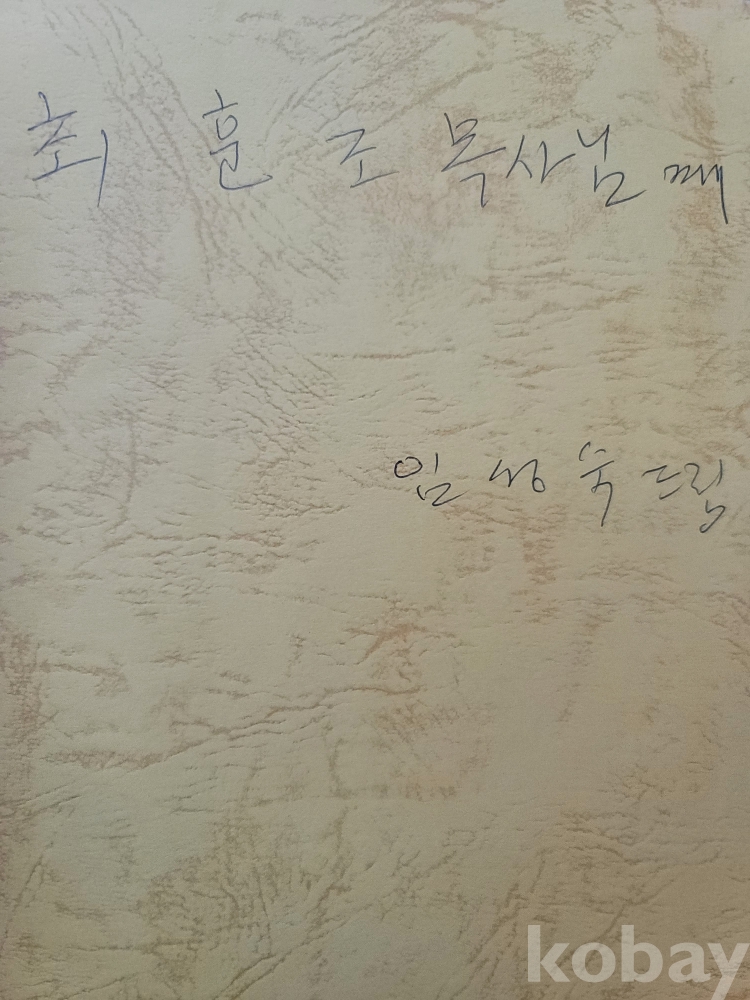 최 훈 조 목사님 께
임성숙 드림
kobay